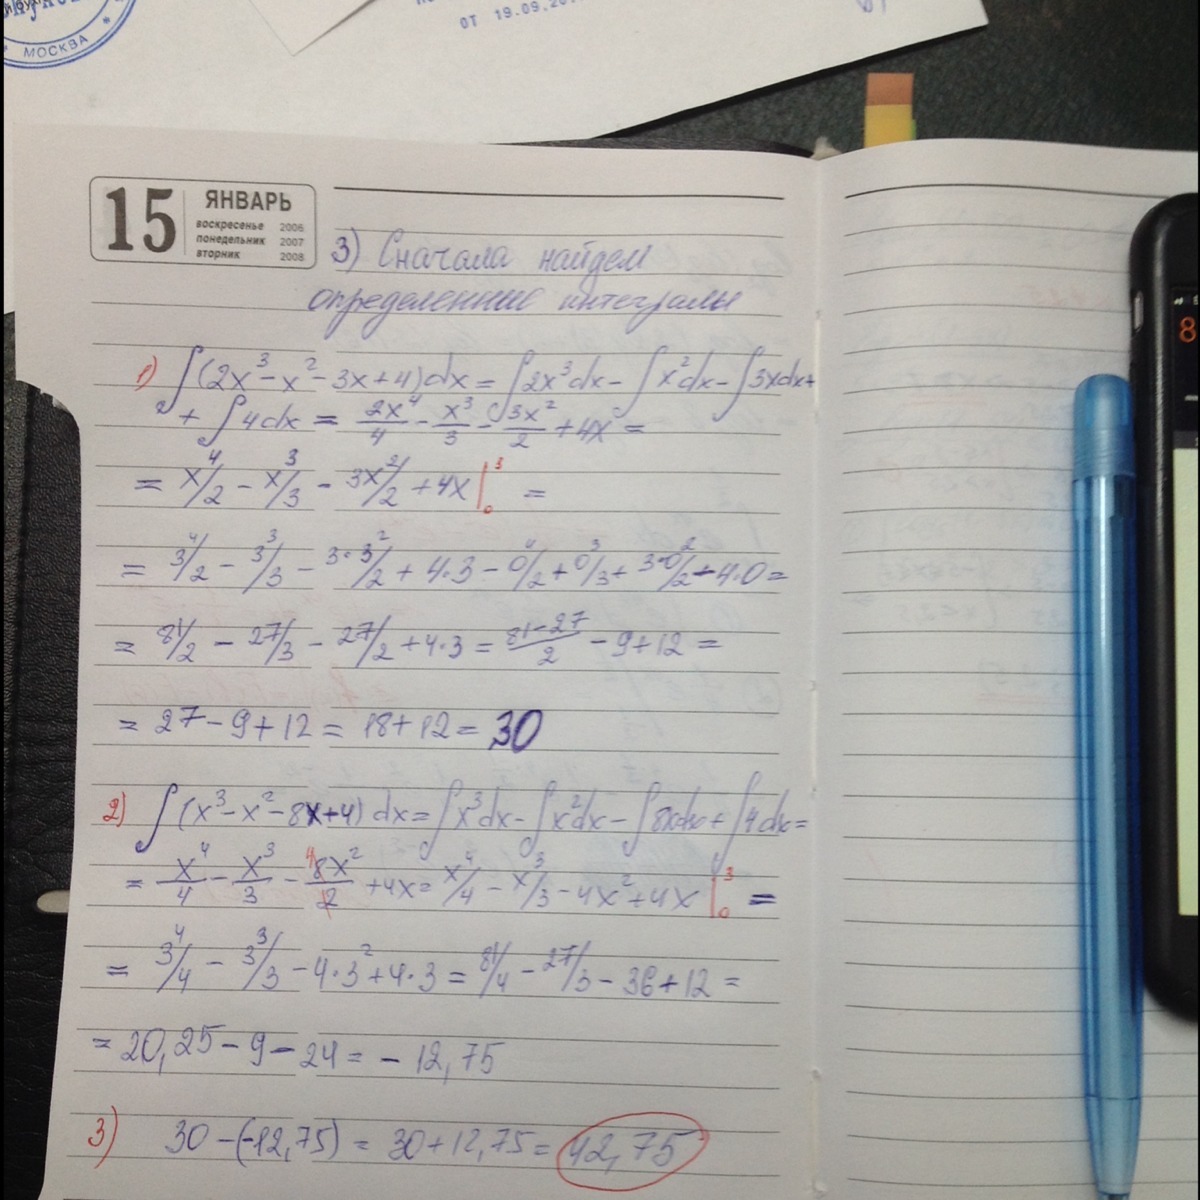 МОСКВА
от 19.09.20
15 ЯНВАРЬ
воскресенье 2006
понедельник 2007
вторник 2008
3) Сначала найдем
определенные интегралы
1) ∫(2x³-x²-3x+4)dx=∫2x³dx-∫x²dx-∫3xdx+
+∫4dx = 2x⁴/4 - x³/3 - 3x²/2 + 4x =
= x⁴/2 - x³/3 - 3x²/2 + 4x|₀³ =
= 3⁴/2 - 3³/3 - 3·3²/2 + 4·3 - 0⁴/2 + 0³/3 + 3·0²/2 - 4·0 =
= 81/2 - 27/3 - 27/2 + 4·3 = 81-27/2 - 9 + 12 =
= 27 - 9 + 12 = 18 + 12 = 30
2) ∫(x³-x²-8x+4) dx=∫x³dx-∫x²dx-∫8xdx+∫4dx=
= x⁴/4 - x³/3 - 8x²/2 + 4x = x⁴/4 - x³/3 - 4x² + 4x|₀³ =
= 3⁴/4 - 3³/3 - 4·3² + 4·3 = 81/4 - 27/3 - 36 + 12 =
= 20,25 - 9 - 24 = - 12,75
3) 30 - (-12,75) = 30 + 12,75 = 42,75
8